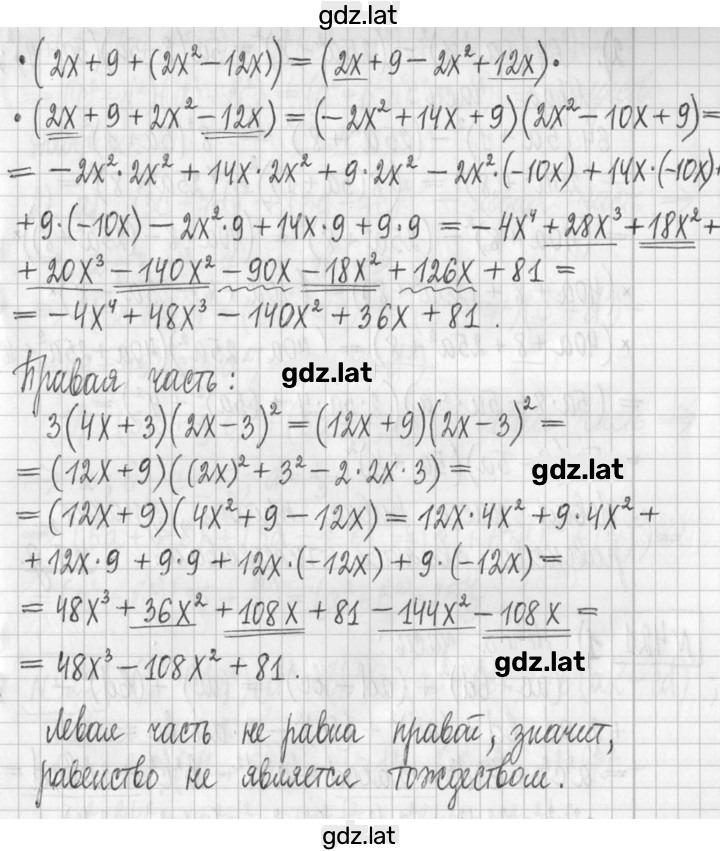 gdz.lat
·(2x+9+(2x²-12x))=(2x+9-2x²+12x)·
·(2x+9+2x²-12x)=(-2x²+14x+9)(2x²-10x+9)=
= -2x²·2x²+14x·2x²+9·2x²-2x²·(-10x)+14x·(-10x)+
+9·(-10x)-2x²·9+14x·9+9·9 = -4x⁴+28x³+18x²+
+20x³-140x²-90x-18x²+126x+81=
= -4x⁴+48x³-140x²+36x+81.
Правая часть: gdz.lat
3(4x+3)(2x-3)²=(12x+9)(2x-3)²=
=(12x+9)((2x)²+3²-2·2x·3)= gdz.lat
=(12x+9)(4x²+9-12x)=12x·4x²+9·4x²+
+12x·9+9·9+12x·(-12x)+9·(-12x)=
= 48x³+36x²+108x+81-144x²-108x=
= 48x³-108x²+81. gdz.lat
Левая часть не равна правой, значит,
равенство не является тождеством.
gdz.lat